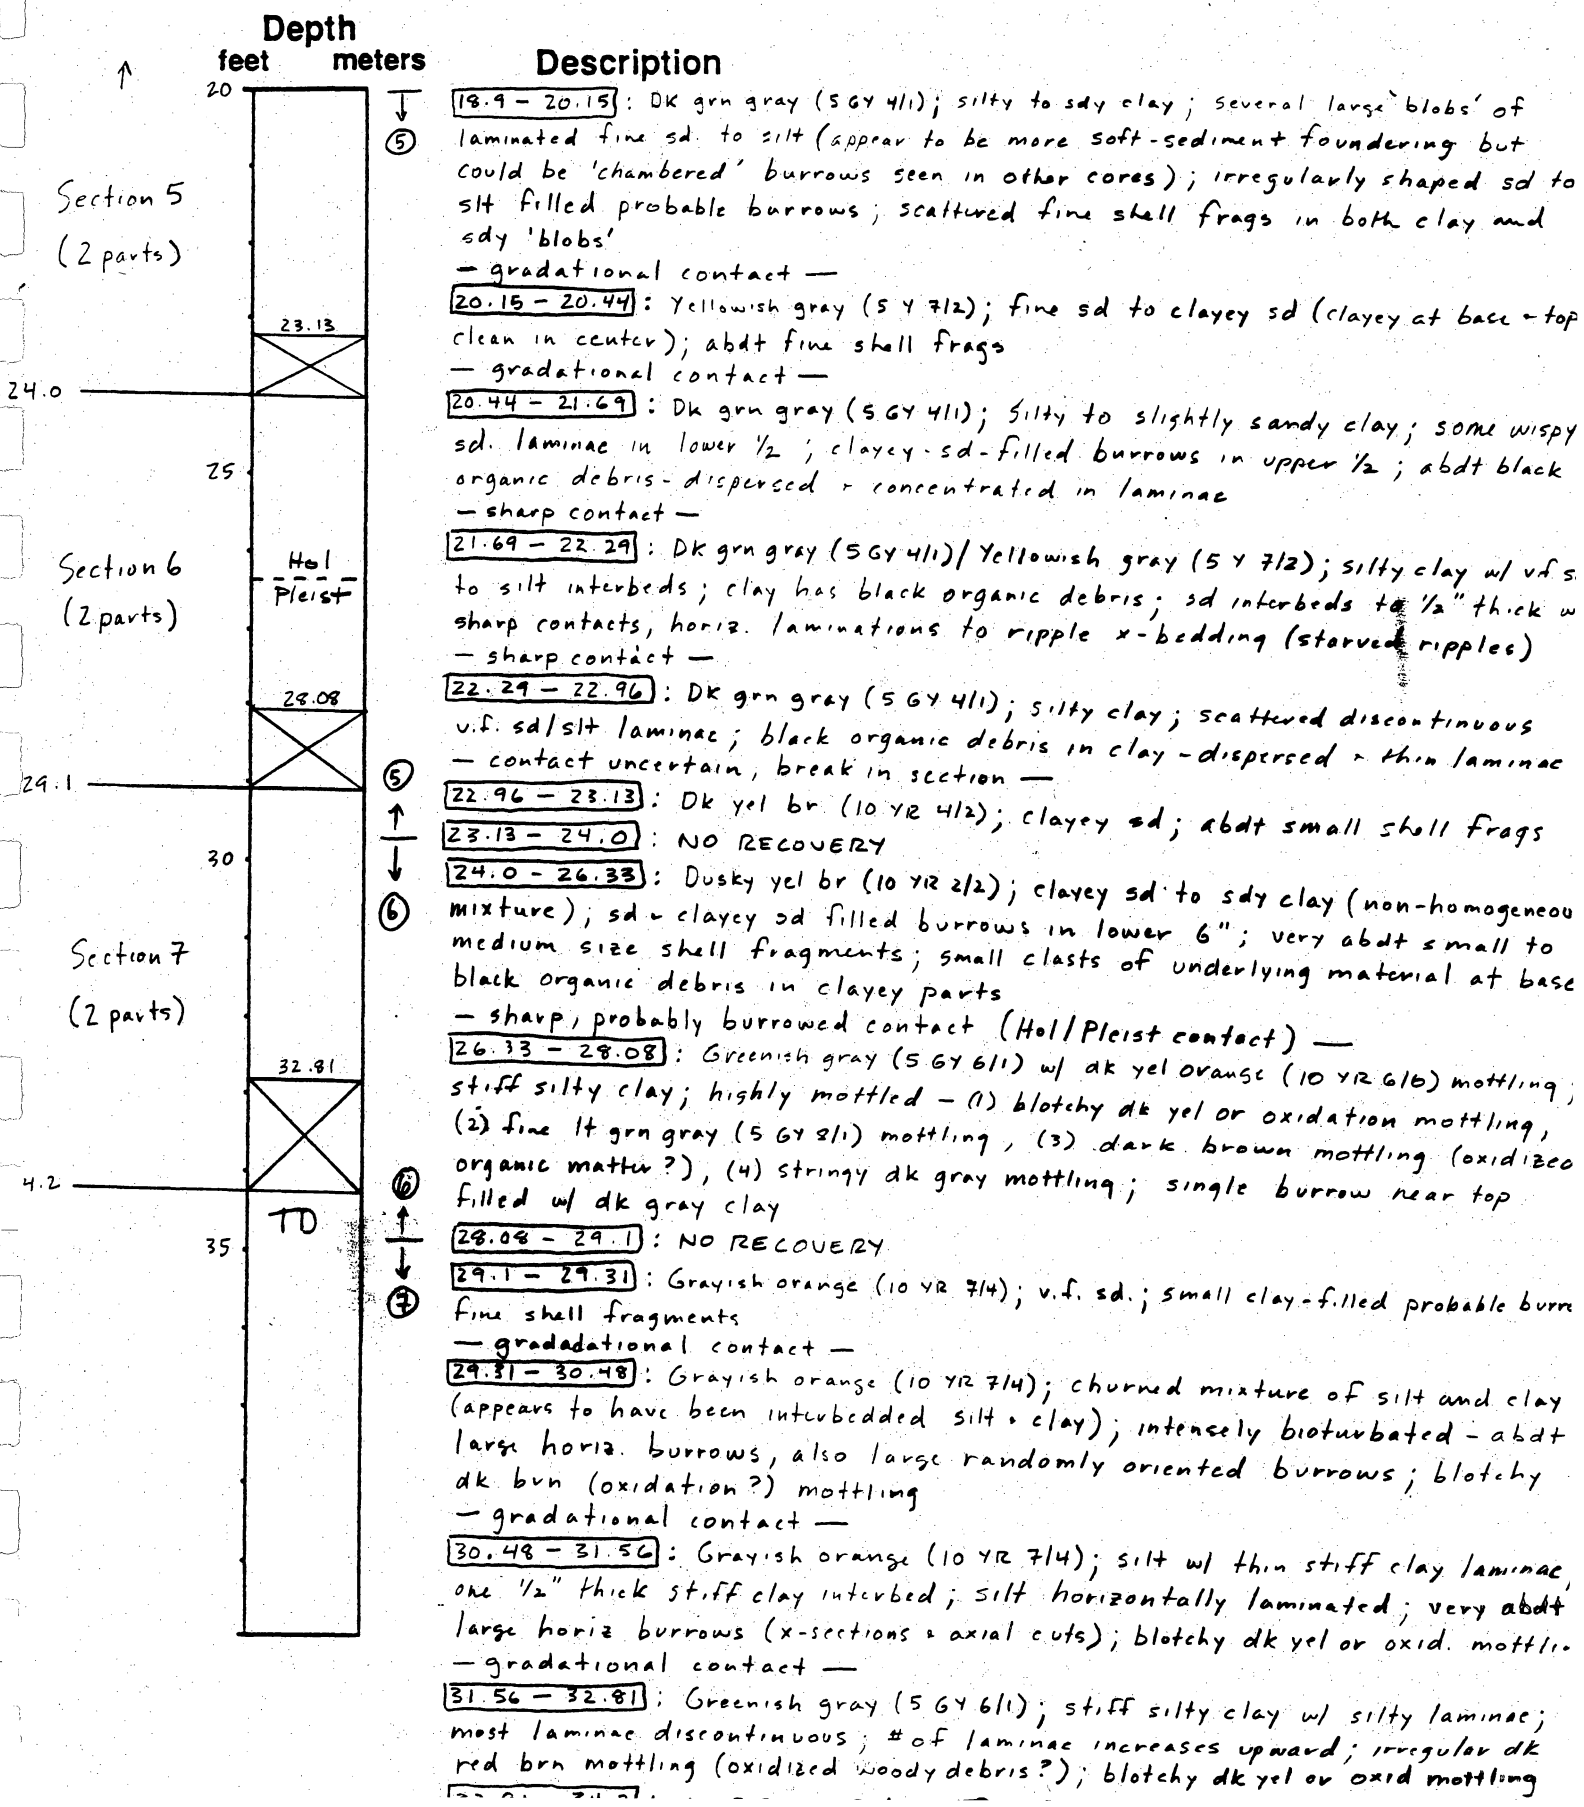 Depth
feet meters Description
↑
20
Section 5
(2 parts)
23.13
24.0
25
Section 6
(2 parts)
Hol
Pleist
28.08
29.1
30
Section 7
(2 parts)
32.81
4.2
TD
35
⑤
⑤
⑥
⑥
⑦
18.9 - 20.15: Dk grn gray (5 GY 4/1); silty to sdy clay; several large 'blobs' of
laminated fine sd. to silt (appear to be more soft-sediment foundering but
could be 'chambered' burrows seen in other cores); irregularly shaped sd to
slt filled probable burrows; scattered fine shell frags in both clay and
sdy 'blobs'
— gradational contact —
20.15 - 20.44: Yellowish gray (5 Y 7/2); fine sd to clayey sd (clayey at base + top
clean in center); abdt fine shell frags
— gradational contact —
20.44 - 21.69: Dk grn gray (5 GY 4/1); silty to slightly sandy clay; some wispy
sd. laminae in lower 1/2; clayey-sd-filled burrows in upper 1/2; abdt black
organic debris - dispersed + concentrated in laminae
— sharp contact —
21.69 - 22.29: Dk grn gray (5 GY 4/1)/ Yellowish gray (5 Y 7/2); silty clay w/ v.f. s
to silt interbeds; clay has black organic debris; sd interbeds to 1/2" thick w
sharp contacts, horiz. laminations to ripple x-bedding (starved ripples)
— sharp contact —
22.29 - 22.96: Dk grn gray (5 GY 4/1); silty clay; scattered discontinuous
v.f. sd/slt laminae; black organic debris in clay - dispersed + thin laminae
— contact uncertain, break in section —
22.96 - 23.13: Dk yel br (10 YR 4/2); clayey sd; abdt small shell frags
23.13 - 24.0: NO RECOVERY
24.0 - 26.33: Dusky yel br (10 YR 2/2); clayey sd to sdy clay (non-homogeneou
mixture); sd + clayey sd filled burrows in lower 6"; very abdt small to
medium size shell fragments; small clasts of underlying material at base
black organic debris in clayey parts
— sharp, probably burrowed contact (Hol/Pleist contact) —
26.33 - 28.08: Greenish gray (5 GY 6/1) w/ dk yel orange (10 YR 6/6) mottling;
stiff silty clay; highly mottled - (1) blotchy dk yel or oxidation mottling,
(2) fine lt grn gray (5 GY 8/1) mottling, (3) dark brown mottling (oxidized
organic matter?), (4) stringy dk gray mottling; single burrow near top
filled w/ dk gray clay
28.08 - 29.1: NO RECOVERY
29.1 - 29.31: Grayish orange (10 YR 7/4); v.f. sd.; small clay-filled probable burr
fine shell fragments
— gradadational contact —
29.31 - 30.48: Grayish orange (10 YR 7/4); churned mixture of silt and clay
(appears to have been interbedded silt + clay); intensely bioturbated - abdt
large horiz. burrows, also large randomly oriented burrows; blotchy
dk brn (oxidation?) mottling
— gradational contact —
30.48 - 31.56: Grayish orange (10 YR 7/4); silt w/ thin stiff clay laminae,
one 1/2" thick stiff clay interbed; silt horizontally laminated; very abdt
large horiz burrows (x-sections + axial cuts); blotchy dk yel or oxid. mottli
— gradational contact —
31.56 - 32.81: Greenish gray (5 GY 6/1); stiff silty clay w/ silty laminae;
most laminae discontinuous; # of laminae increases upward; irregular dk
red brn mottling (oxidized woody debris?); blotchy dk yel or oxid mottling